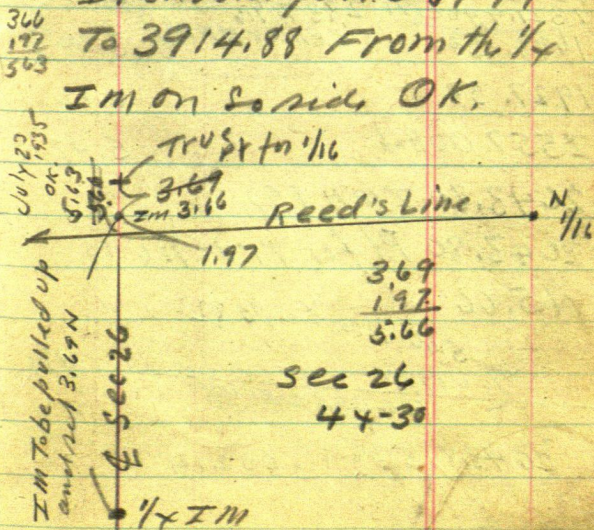 366
197
563
To 3914.88 From the 1/4
Im on So side OK.
July 23
1935
OK.
5.63
Tru for 1/16
3.69
Im 3.66
Reed's Line
N
1/16
1.97
3.69
1.97
5.66
Sec 26
44-30
IM To be pulled up
and set 3.69 N
℄ Sec 26
1/4 IM